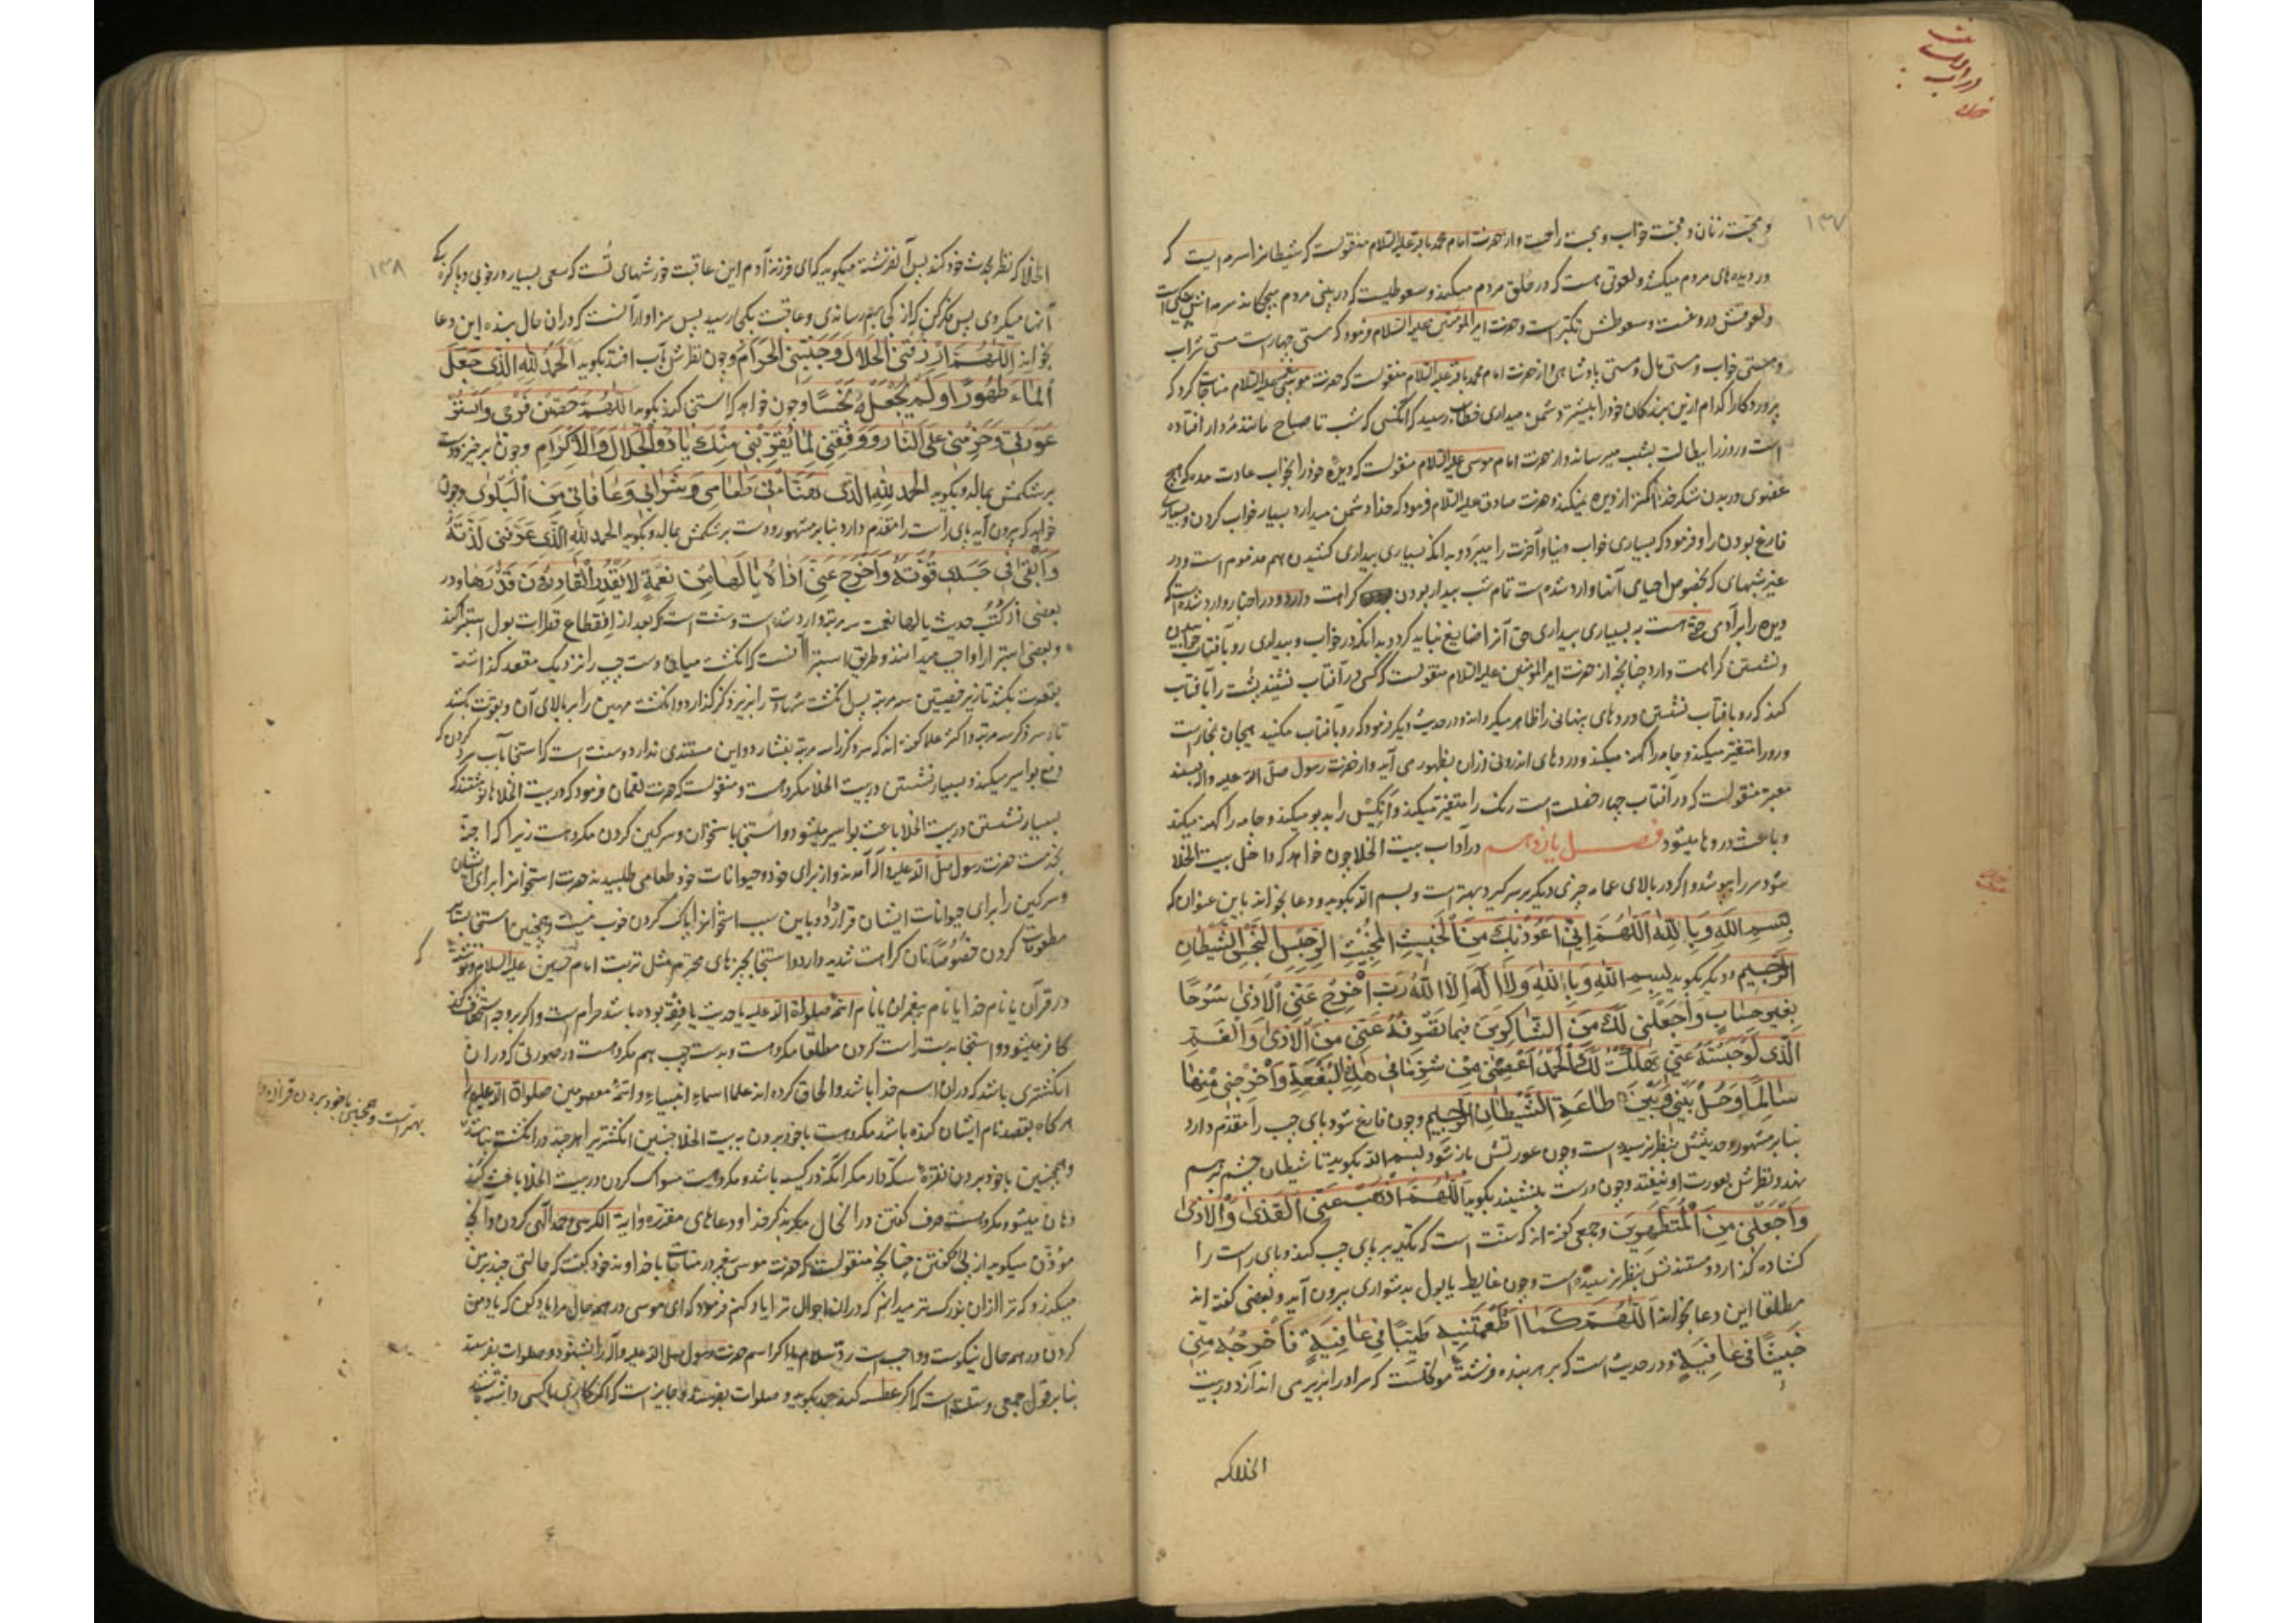 ۱۳۷
و محبت زنان و محبت خواب و محبت راحت و از حضرت امام محمد باقر علیه السلام منقولست که شیطانرا سرمه ایست که
در دیده های مردم میکشد و لعوقی هست که در حلق مردم میکند و سعوطیست که در بینی مردم میچکاند سرمه اش پینکی است
و لعوقش دروغست و سعوطش تکبر است و حضرت امیر المؤمنین علیه السلام فرمود که مستی چهار است مستی شراب
و مستی خواب و مستی مال و مستی پادشاهی و از حضرت امام محمد باقر علیه السلام منقولست که حضرت موسی علیه السلام مناجات کرد که
پروردکارا کدام از بندکان خود را بیشتر دشمن میداری خطاب رسید که انکسی که شب تا صباح مانند مردار افتاده
است و روز را ببطالت بشب میرساند و از حضرت امام موسی علیه السلام منقولست که دیده خود را بخواب عادت مده که هیچ
عضوی در بدن شکر خدا کمتر از دیده نمیکند و حضرت صادق علیه السلام فرمود که خدا دشمن میدارد بسیار خواب کردن و بسیار
فارغ بودن را و فرمود که بسیاری خواب دنیا و آخرت را میبرد و بدانکه بسیاری بیداری کشیدن هم مذموم است و در
غیر شبهای که بخصوص احیای آنها وارد شده است تمام شب بیدار بودن کراهت دارد و در اخبار وارد شده است که
دیده را بر آدمی حقی هست به بسیاری بیداری حق آنرا ضایع نباید کرد و بدانکه در خواب و بیداری رو بافتاب خوابیدن
و نشستن کراهت دارد چنانچه از حضرت امیر المؤمنین علیه السلام منقولست که کسی در آفتاب نشیند پشت را بآفتاب
کند که رو بافتاب نشستن دردهای پنهانی را ظاهر میکرداند و در حدیث دیکر فرمود که رو بآفتاب مکنید
و رو را متغیر میکند و جامه را کهنه میکند و دردهای اندرونی از ان بظهور می آید و از حضرت رسول صلی الله علیه و آله بسند
معتبر منقولست که در آفتاب چهار خصلت است رنک را متغیر میکند و آدمی را بدبو میکند و جامه را کهنه میکند
و باعث دردها میشود فصل یازدهم در آداب بیت الخلا چون خواهد که داخل بیت الخلا
شود سر را بپوشد و اکر در بالای عمامه چیزی دیکر بر سر کیرد بهتر است و بسم الله بکوید و دعا بخواند باین عنوان که
بِسْمِ اللَّهِ وَبِاللَّهِ اللَّهُمَّ اِنّی اَعُوذُ بِكَ مِنَ الْخَبِیثِ الْمُخْبِثِ الرِّجْسِ النَّجِسِ الشَّیْطَانِ
الرَّجِیمِ و دیکر بکوید بِسْمِ اللهِ وَبِاللهِ وَلَا اِلَهَ اِلَّا اللهُ رَبِّ اَخْرِجْ عَنّی الْاَذَی سُرُحًا
بِغَیْرِ حِسَابٍ وَاجْعَلْنِی لَكَ مِنَ الشَّاکِرِینَ فِیمَا تَصْرِفُهُ عَنّی مِنَ الْاَذَی وَالْغَمِّ
الَّذِی لَوْ حَبَسْتَهُ عَنّی هَلَکْتُ لَكَ الْحَمْدُ اعْصِمْنِی مِنْ شَرِّ مَا فِی هَذِهِ الْبُقْعَةِ وَاَخْرِجْنِی مِنْهَا
سَالِمًا وَحُلْ بَیْنِی وَبَیْنَ طَاعَةِ الشَّیْطَانِ الرَّجِیمِ و چون فارغ شود پای چپ را مقدم دارد
بنابر مشهور و حدیثش بنظر نرسیده است و چون عورتش باز شود بسم الله بکوید تا شیطان چشم بر هم
نهد و نظرش بعورت او نیفتد و چون درست بنشیند بکوید اَللَّهُمَّ اَذْهِبْ عَنّی الْقَذَی وَالْاَذَی
وَاجْعَلْنِی مِنَ الْمُتَطَهِّرِینَ و جمعی کفته اند که سنت است که تکیه بر پای چپ کند و پای راست را
کشاده کذارد و مستندش بنظر نرسیده است و چون غایط یا بول بدشواری بیرون آید و بعضی کفته اند
مطلقا این دعا بخواند اَللَّهُمَّ کَمَا اَطْعَمْتَنِیهِ طَیِّبًا فِی عَافِیَةٍ فَاَخْرِجْهُ مِنّی
خَبِیثًا فِی عَافِیَةٍ و در حدیث است که بر هر بنده فرشته موکلست که سر او را بزیر می اندازد در بیت
الخلا که
۱۳۸
الخلا که نظر بحدث خود کند پس آنفرشته میکوید که ای فرزند آدم این عاقبت خورشهای تست که سعی بسیار در خوبی و پاکیزه
آنها میکردی پس فکر کن که از کجا بهم رساندی و عاقبت بکجا رسید پس سزاوار آنست که در ان حال بنده این دعا
بخواند اَللَّهُمَّ ارْزُقْنِی الْحَلَالَ وَجَنِّبْنِی الْحَرَامَ و چون نظرش بآب افتد بکوید اَلْحَمْدُ لِلَّهِ الَّذِی جَعَلَ
الْمَاءَ طَهُورًا وَلَمْ یَجْعَلْهُ نَجِسًا و چون خواهد که استنجا کند بکوید اَللَّهُمَّ حَصِّنْ فَرْجِی وَاسْتُرْ
عَوْرَتِی وَحَرِّمْنِی عَلَی النَّارِ وَوَفِّقْنِی لِمَا یُقَرِّبُنِی مِنْكَ یَا ذَا الْجَلَالِ وَالْاِکْرَامِ و چون برخیزد دست
بر شکمش بمالد و بکوید الْحَمْدُ لِلَّهِ الَّذِی هَنَّأَنِی طَعَامِی وَشَرَابِی وَعَافَانِی مِنَ الْبَلْوَی و چون
خواهد که بیرون آید پای راست را مقدم دارد بنابر مشهور و دست بر شکمش بمالد و بکوید الحمد لِلَّهِ الَّذِی عَرَّفَنِی لَذَّتَهُ
وَاَبْقَی فِی جَسَدِی قُوَّتَهُ وَاَخْرَجَ عَنّی اَذَاهُ یَا لَهَا مِنْ نِعْمَةٍ لَا یَقْدِرُ الْقَادِرُونَ قَدْرَهَا و در
بعضی از کتب حدیث یا لها نعمت سه مرتبه وارد شده است و سنت است که بعد از انقطاع قطرات بول استبرا کند
و بعضی استبرا را واجب میدانند و طریق استبرا آنست که انکشت میان دست چپ را نزدیک مقعد کذاشته
بقوت بکشد تا زیر خصیتین سه مرتبه پس انکشت شهادت را بزیر ذکر کذارد و انکشت مهین را بر بالای آن و بقوت بکشد
تا سر ذکر سه مرتبه و اکثر علما کفته اند که سر ذکر را سه مرتبه بفشارد و این مستندی ندارد و سنت است که استنجا بآب سرد کردن که
دفع بواسیر میکند و بسیار نشستن در بیت الخلا مکروهست و منقولست که حضرت لقمان فرمود که در بیت الخلاها نوشتند که
بسیار نشستن در بیت الخلا باعث بواسیر میشود و استنجا باستخوان و سرکین کردن مکروهست زیرا که اجنه
بخدمت حضرت رسول صلی الله علیه و آله آمدند و از برای خود و حیوانات خود طعامی طلبیدند حضرت استخوانرا برای ایشان
و سرکین را برای حیوانات ایشان قرار داد و باین سبب استخوانرا پاک کردن خوب نیست و همچنین استنجا بسایر
مطعومات کردن خصوصا نان کراهت شدید دارد و استنجا بچیزهای محترم مثل تربت امام حسین علیه السلام و نوشته که
در قرآن یا نام خدا یا نام پیغمبران یا نام ائمه صلوات الله علیهم یا حدیث یا فقه بوده باشد حرام است و اکر بر وجه استخفاف کند
کافر میشود و استنجا بدست راست کردن مطلقا مکروهست و بدست چپ هم مکروهست در صورتی که در ان
انکشتری باشد که در ان اسم خدا باشد و الحاق کرده اند علما اسماء انبیاء و ائمه معصومین صلوات الله علیهم را
هرکاه بقصد نام ایشان کنده باشد مکروهست با خود بردن به بیت الخلا چنین انکشتریرا هرچند در انکشت نباشد
و همچنین با خود بردن نقره سکه دار مکر انکه در کیسه باشد و مکروهست مسواک کردن در بیت الخلا باعث کند
دهان میشود و مکروهست حرف کفتن در انحال مکر بذکر خدا و دعاهای مقرره و آیة الکرسی و حمد الهی کردن و آنچه
مؤذن میکوید از پی کفتن چنانچه منقولست که حضرت موسی پیغمبر در مناجات با خداوند خود کفت که حالتی چند بر من
میکذرد که ترا از ان بزرک تر میدانم که در ان احوال ترا یاد کنم فرمود که ای موسی در همه حال مرا یاد کن که یاد من
کردن در همه حال نیکوست و واجب است رد سلام و اکر اسم حضرت رسول صلی الله علیه و آله را بشنود صلوات بفرستد
بنابر قول جمعی و سنت است که اکر عطسه کند حمد بکوید و صلوات بفرستد و جایز است که اکر کاری با کسی داشته باشد
بهتر است و همچنین با خود بردن قرآن و